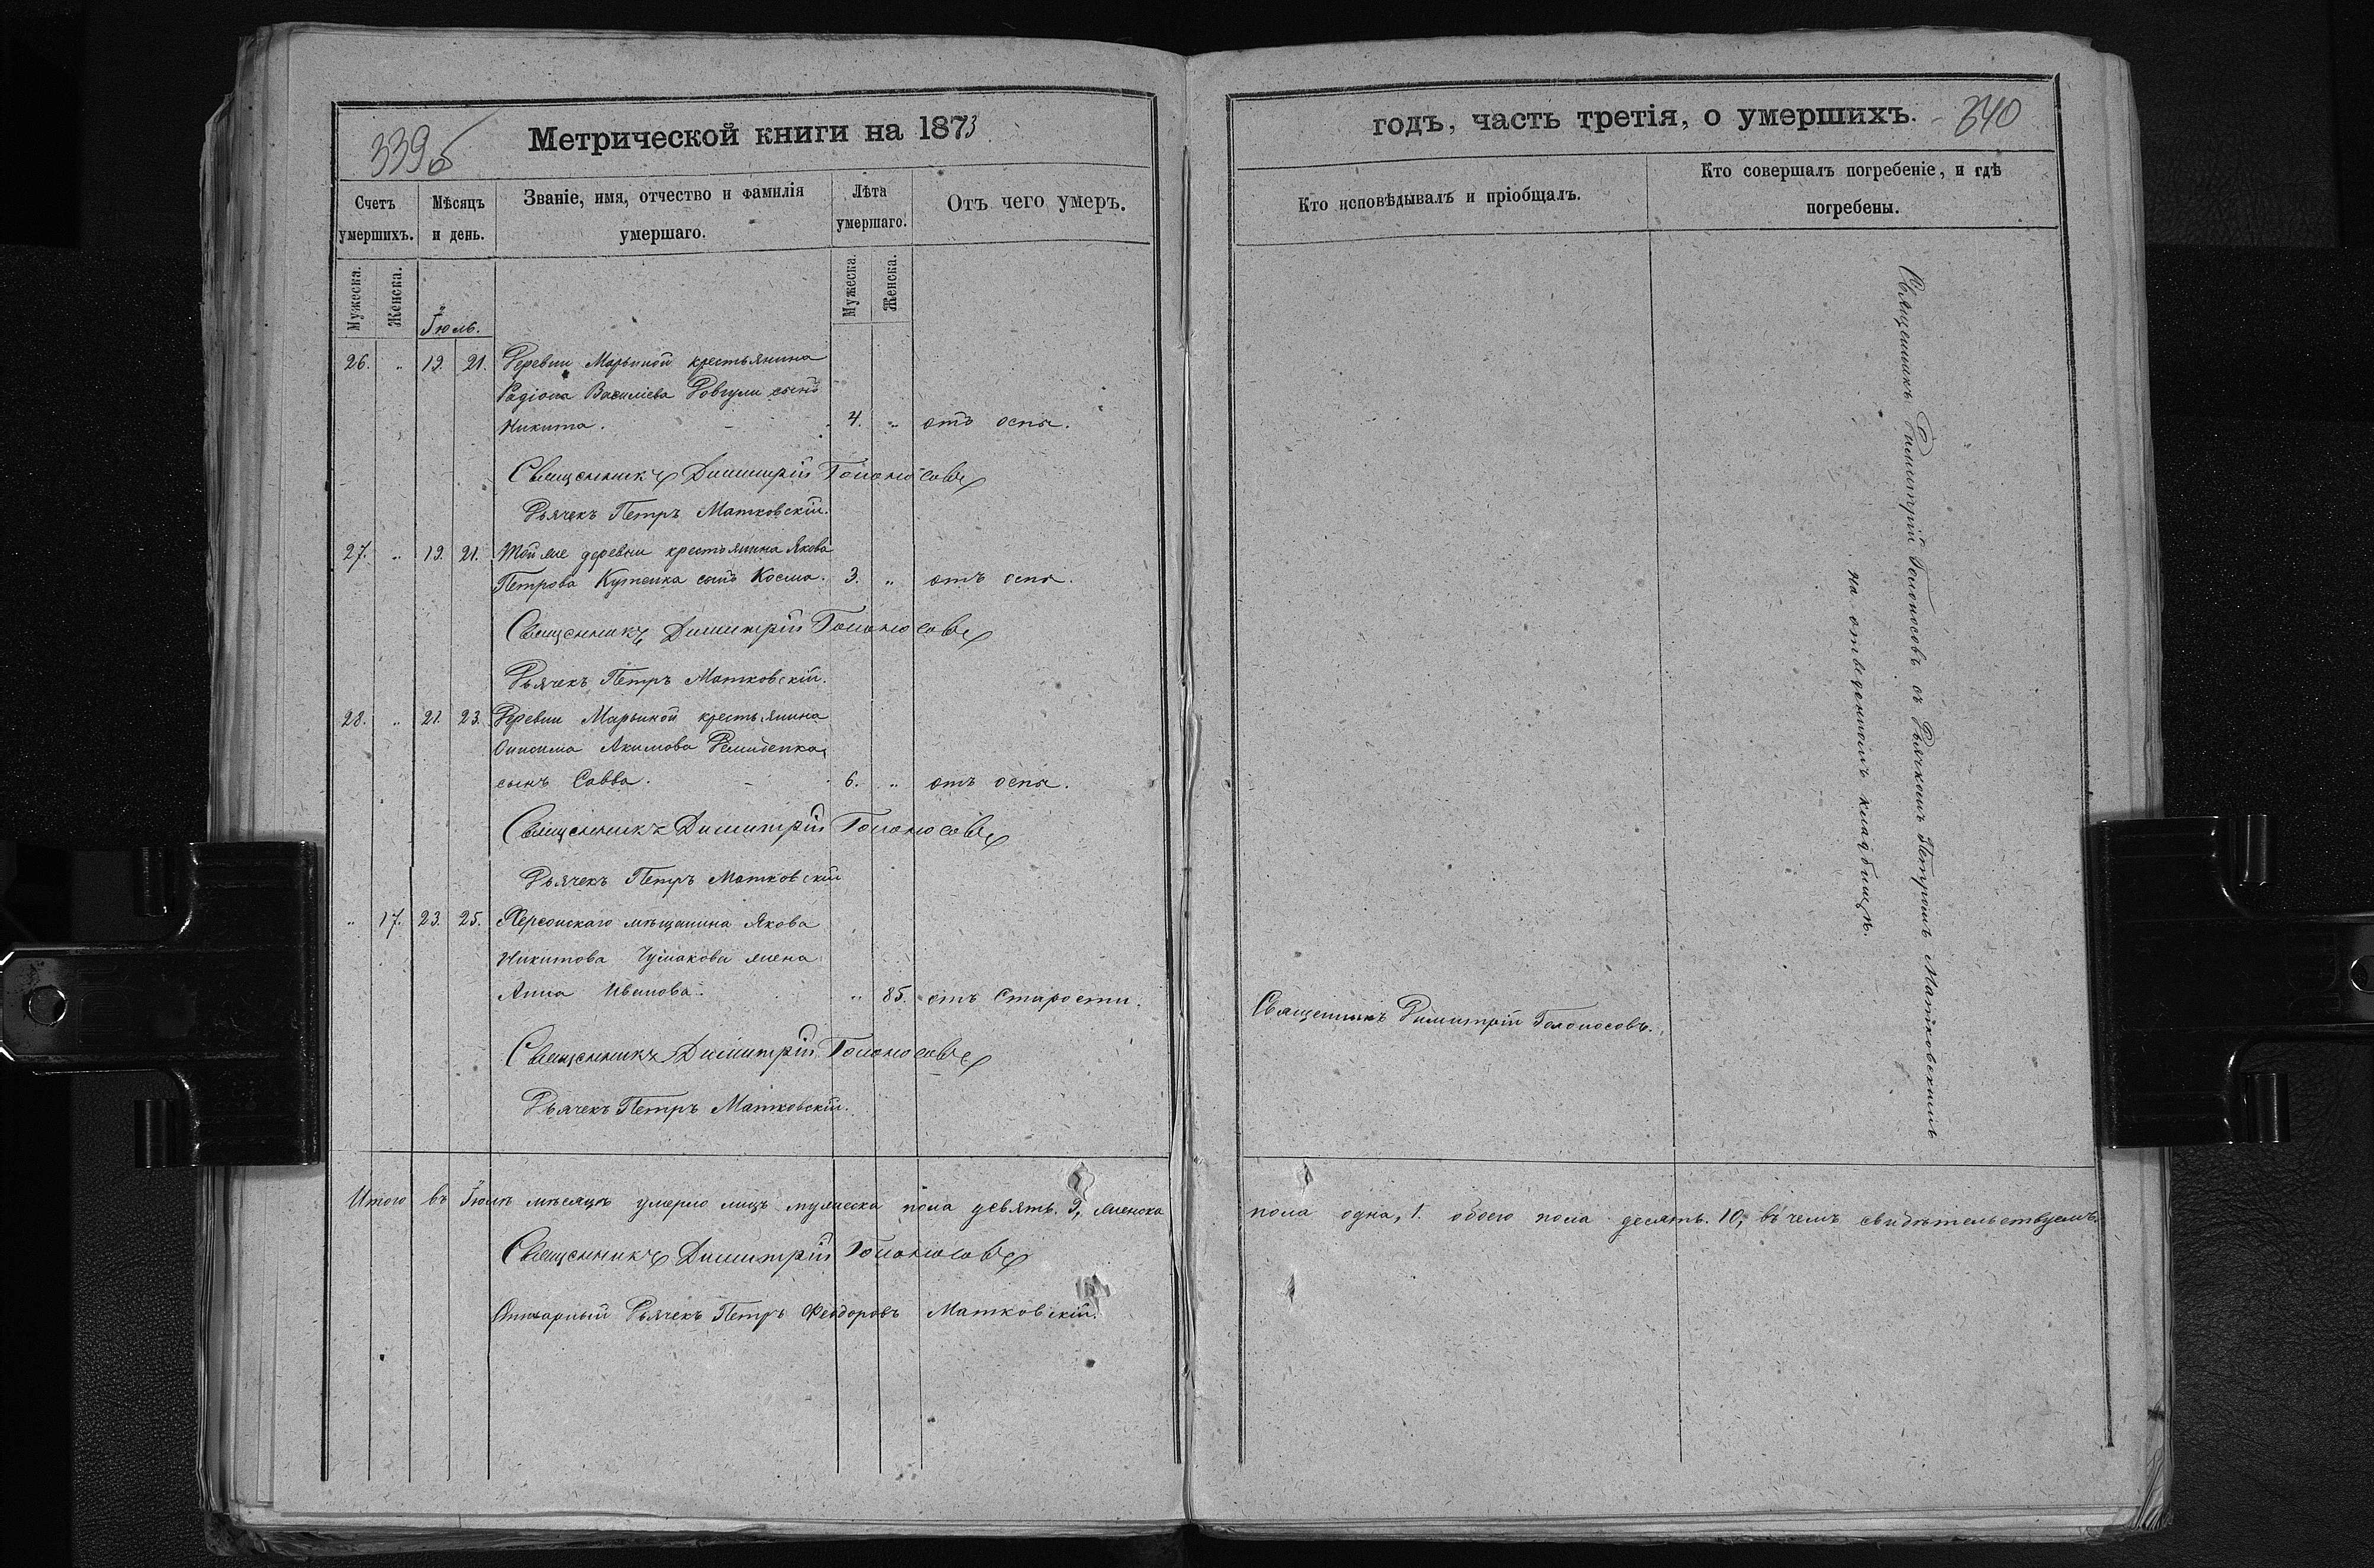 339б
Метрической книги на 1873
Счетъ умершихъ.
Мѣсяцъ и день.
Званіе, имя, отчество и фамилія умершаго.
Лѣта умершаго.
Отъ чего умеръ.
Мужеска.
Женска.
Іюль.
Мужеска.
Женска.
26. „ 19. 21. Деревни Марьиной крестьянина
Радіона Василіева Довгули сынъ
Никита. 4. „ отъ оспы.
Священникъ Димитрій Голоносовъ
Дьячекъ Петръ Матковскій.
27. „ 19. 21. Той же деревни крестьянина Якова
Петрова Куценка сынъ Косма. 3. „ отъ оспы.
Священникъ Димитрій Голоносовъ
Дьячекъ Петръ Матковскій.
28. „ 21. 23. Деревни Марьиной крестьянина
Онисима Акимова Демиденка
сынъ Савва. 6. „ отъ оспы.
Священникъ Димитрій Голоносовъ
Дьячекъ Петръ Матковскій
„ 17. 23. 25. Херсонскаго мѣщанина Якова
Никитова Чумакова жена
Анна Иванова. „ 85. отъ старости.
Священникъ Димитрій Голоносовъ
Дьячекъ Петръ Матковскій.
Итого въ Іюлѣ мѣсяцѣ умерло лицъ мужеска пола девять. 9, женска
Священникъ Димитрій Голоносовъ
Дьячекъ Петръ Феодоровъ Матковскій.
годъ, часть третія, о умершихъ. - 340
Кто исповѣдывалъ и пріобщалъ.
Кто совершалъ погребеніе, и гдѣ погребены.
Священникъ Димитрій Голоносовъ съ Дьячкомъ Петромъ Матковскимъ
на отведенномъ кладбищѣ.
Священникъ Димитрій Голоносовъ.
пола одна, 1. обоего пола десять. 10, въ чемъ свидѣтельствуемъ.